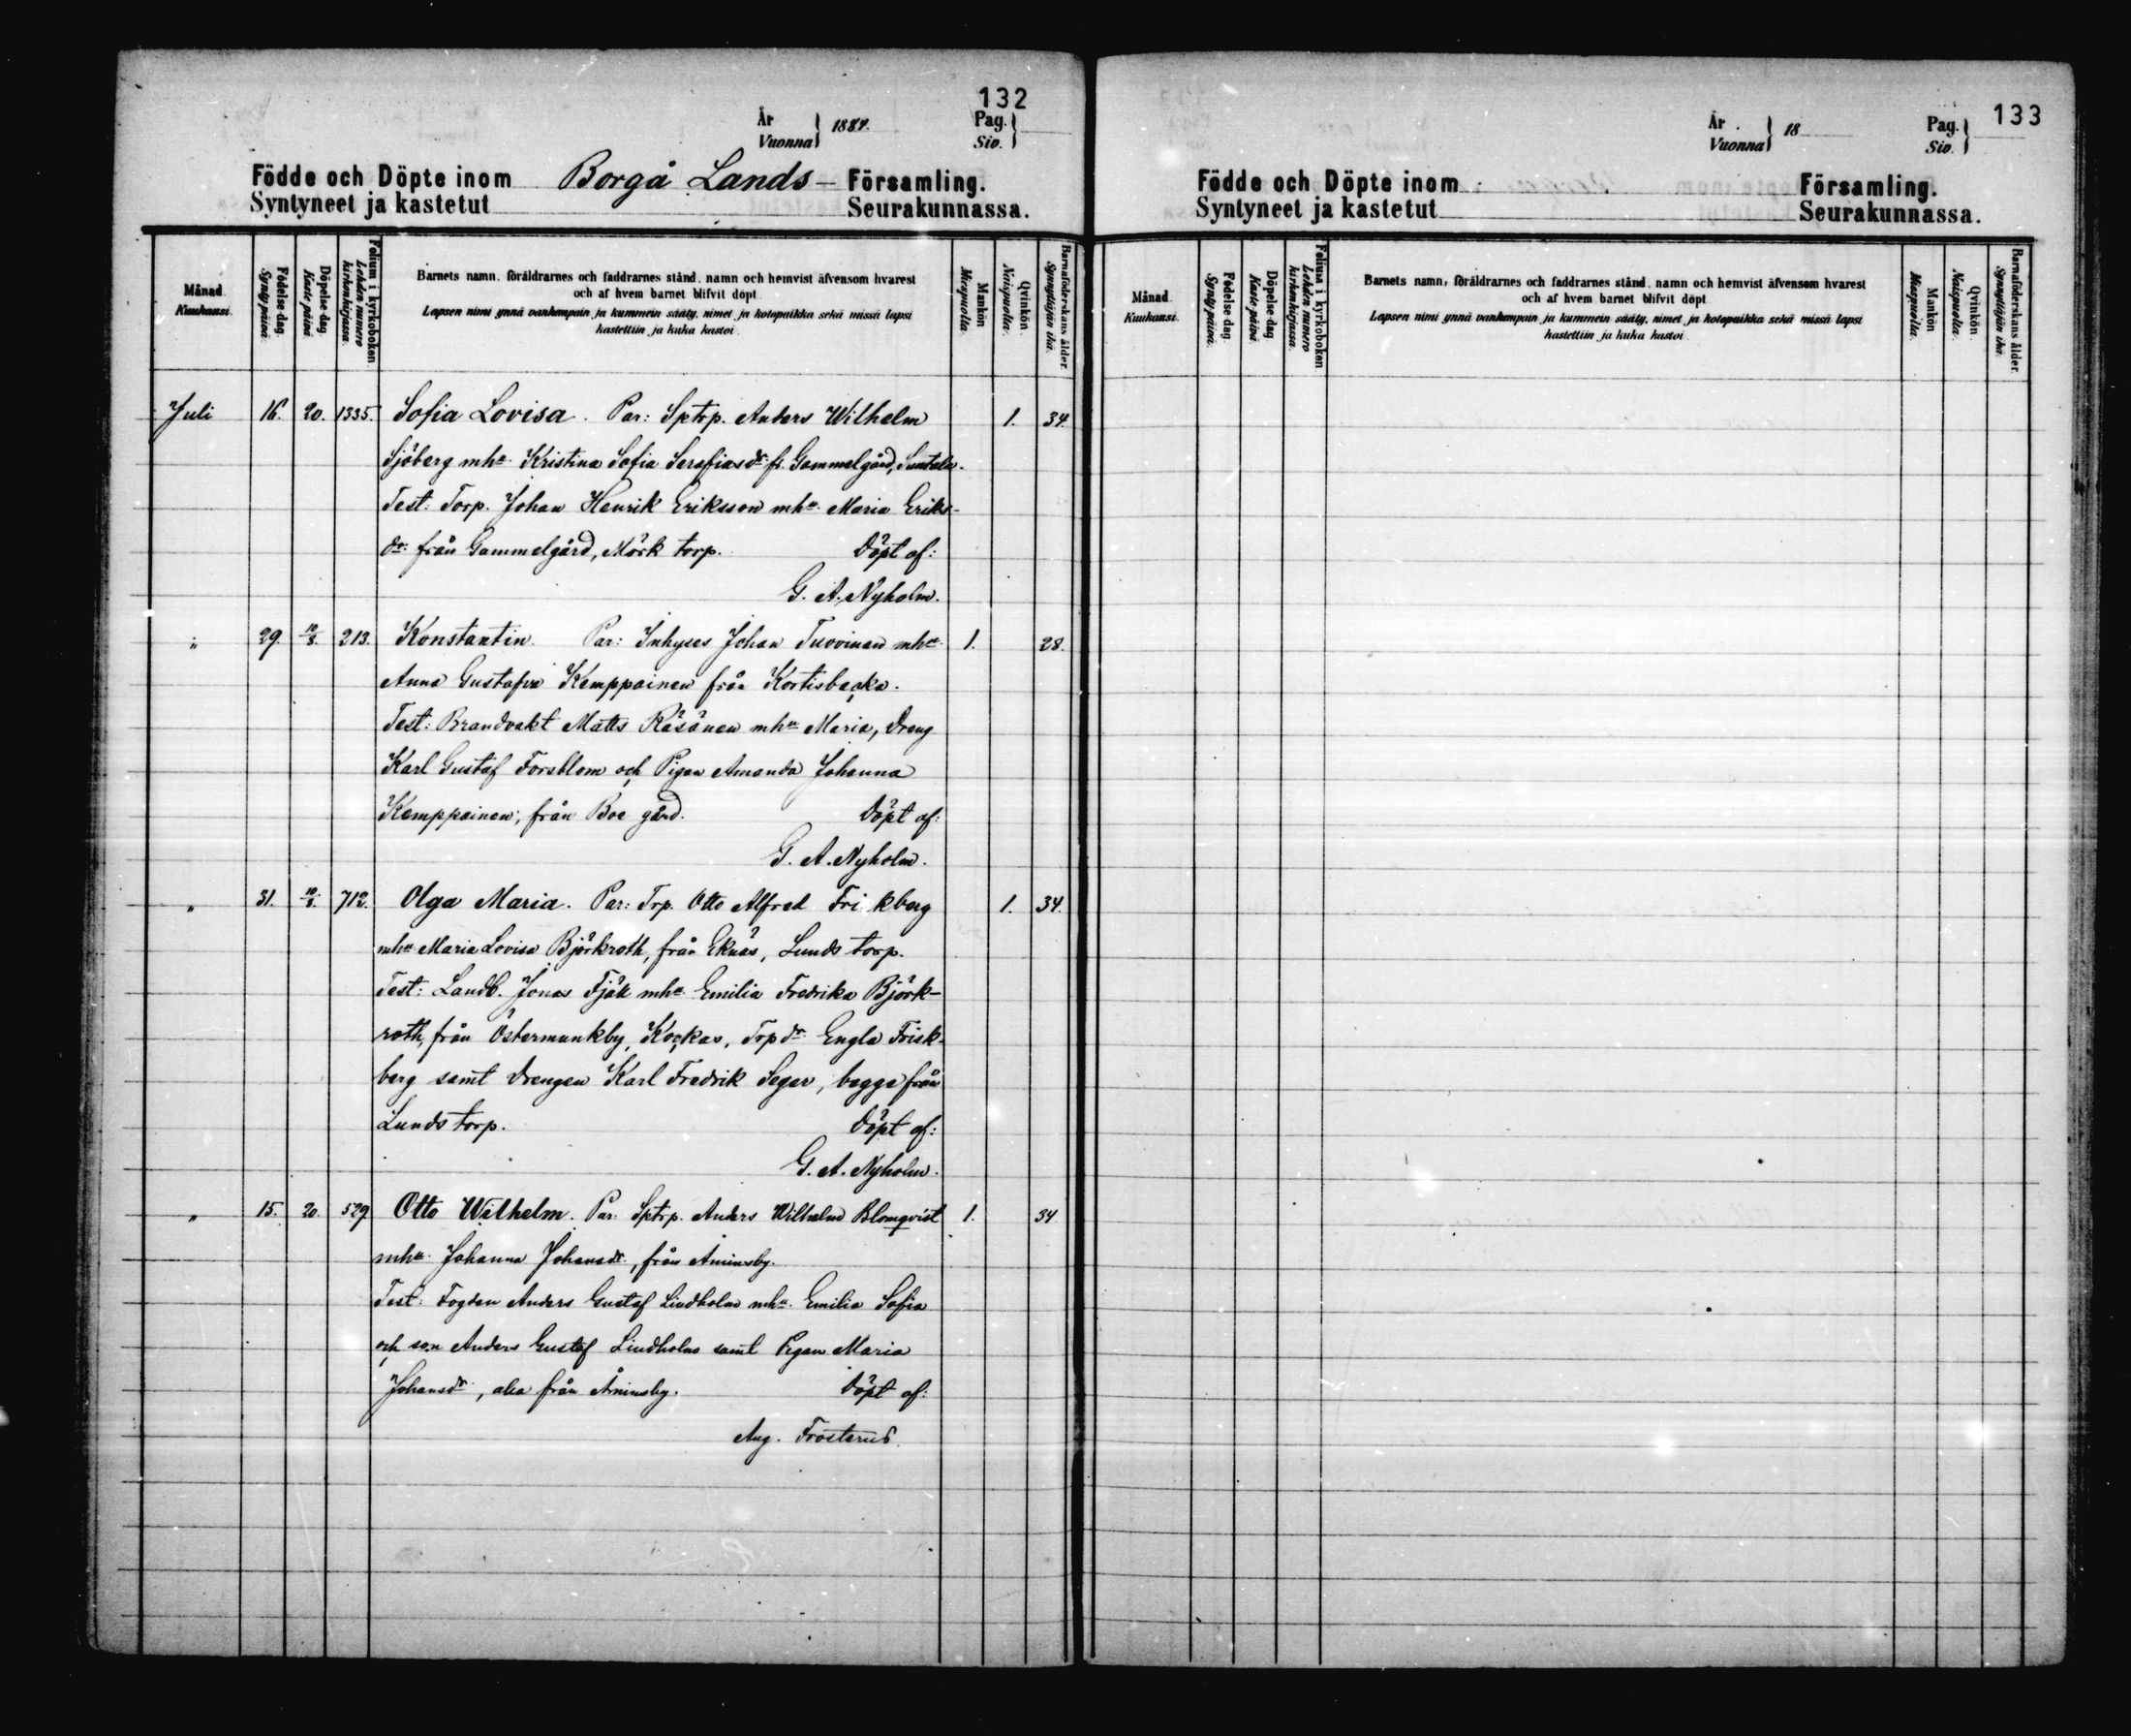 132
År
Vuonna } 1884.
Pag.
Siv. }
Födde och Döpte inom Borgå Lands– Församling.
Syntyneet ja kastetut Seurakunnassa.
Månad.
Kuukausi.
Födelse-dag.
Syntypäivä.
Döpelse-dag.
Kastepäivä.
Folium i kyrkoboken
Lehden numero kirkonkirjassa.
Barnets namn, föräldrarnes och faddrarnes stånd, namn och hemvist äfvensom hvarest
och af hvem barnet blifvit döpt.
Lapsen nimi ynnä vanhempain ja kummein sääty, nimet ja kotopaikka sekä missä lapsi
kastettiin ja kuka kastoi.
Mankön
Miespuolta.
Qvinkön.
Naispuolta.
Barnaföderskans ålder.
Synnyttäjän ikä.
Juli 16. 20. 1335. Sofia Lovisa. Par: Sptrp. Anders Wilhelm 1. 34.
Sjöberg mhu Kristina Sofia Serafiasdr fr. Gammelgård,
Test: Torp. Johan Henrik Eriksson mhu Maria Eriks-
dr: från Gammelgård, Mörk torp. Döpt af:
G. A. Nyholm.
" 29. 10/8. 213. Konstantin. Par: Inhyses Johan Tuovinen mhu 1. 28.
Anna Gustafva Kemppainen från Kortisbacka.
Test: Brandvakt Matts Räsänen mhu Maria, Dreng
Karl Gustaf Forsblom och Pigan Amanda Johanna
Kemppainen, från Boe gård. Döpt af:
G. A. Nyholm.
" 31. 10/8. 712. Olga Maria. Par: Trp. Otto Alfred Fri kberg 1. 34.
mhu Maria Lovisa Björkroth, från Eknäs, Lunds torp.
Test: Landb. Jonas Fjäll mhu Emilia Fredrika Björk-
roth, från Östermunkby, Kockas, Trpdr Engla Frisk-
berg samt Drengen Karl Fredrik Seger, begge från
Lunds torp. Döpt af:
G. A. Nyholm.
" 15. 20. 529 Otto Wilhelm. Par. Sptrp. Anders Wilhelm Blomqvist 1. 34
mhu Johanna Johansdr, från Åminsby.
Test: Fogden Anders Gustaf Lindholm mhu Emilia Sofia
och son Anders Gustaf Lindholm samt Pigan Maria
Johansdr, alla från Åminsby. Döpt af:
Aug. Frosterus.
133
År
Vuonna } 18
Pag.
Siv. }
Födde och Döpte inom Församling.
Syntyneet ja kastetut Seurakunnassa.
Månad.
Kuukausi.
Födelse-dag.
Syntypäivä.
Döpelse-dag
Kastepäivä.
Folium i kyrkoboken
Lehden numero kirkonkirjassa.
Barnets namn, föräldrarnes och faddrarnes stånd, namn och hemvist äfvensom hvarest
och af hvem barnet blifvit döpt.
Lapsen nimi ynnä vanhempain ja kummein sääty, nimet ja kotopaikka sekä missä lapsi
kastettiin ja kuka kastoi
Mankön
Miespuolta.
Qvinkön.
Naispuolta.
Barnaföderskans ålder.
Synnyttäjän ikä.